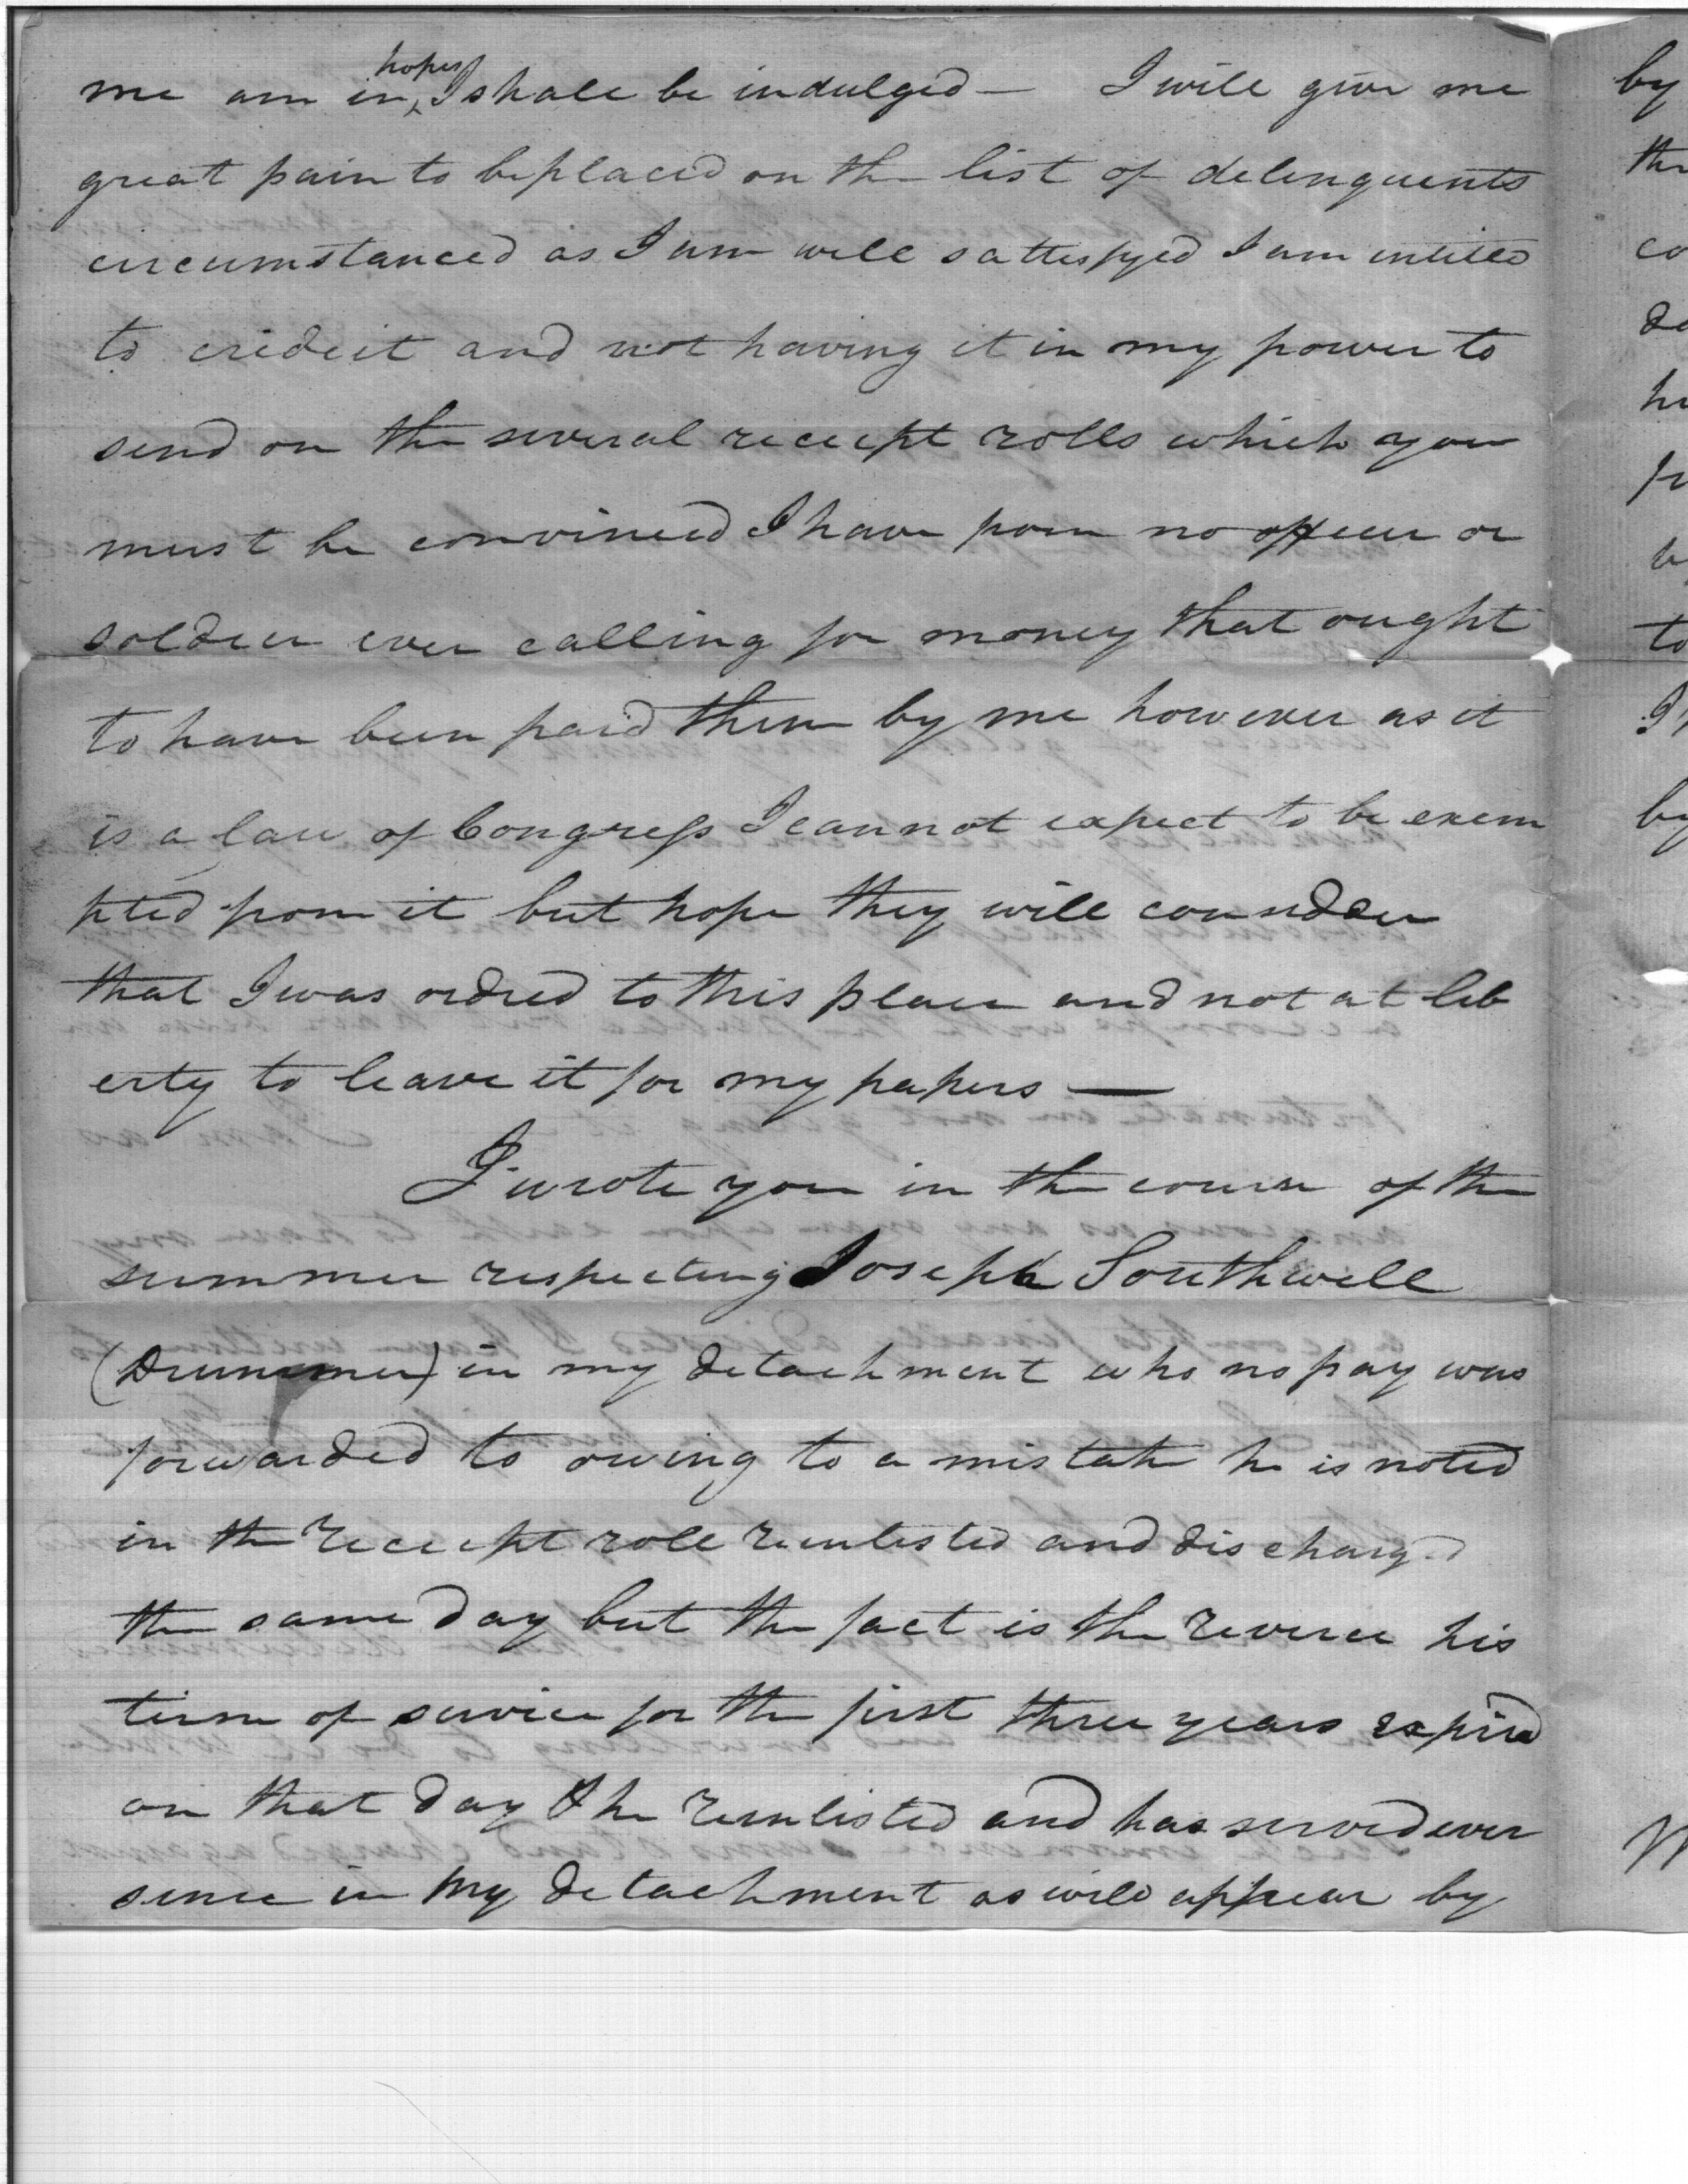 me am in hopes I shall be indulged — I will give me
great pain to be placed on the list of delenquents
circumstanced as I am well sattesfyed I am intitled
to crideit and not having it in my power to
send on the several receipt rolls which you
must be convinced I have from no officer or
soldier ever calling for money that ought
to have been paid them by me however as it
is a law of Congress I cannot expect to be exem
pted from it but hope they will consider
that I was ordred to this place and not at lib
erty to leave it for my papers —
I wrote you in the course of the
summer respecting Joseph Southwell
(Drummer) in my detachment who no pay was
forwarded to owing to a mistake he is noted
in the receipt roll reenlisted and discharged
the same day but the fact is the reverce his
term of service for the first three years expired
on that day & he reenlisted and has served ever
since in my detachment as will appear by
by
the
co
de
he
fr
by
to
by